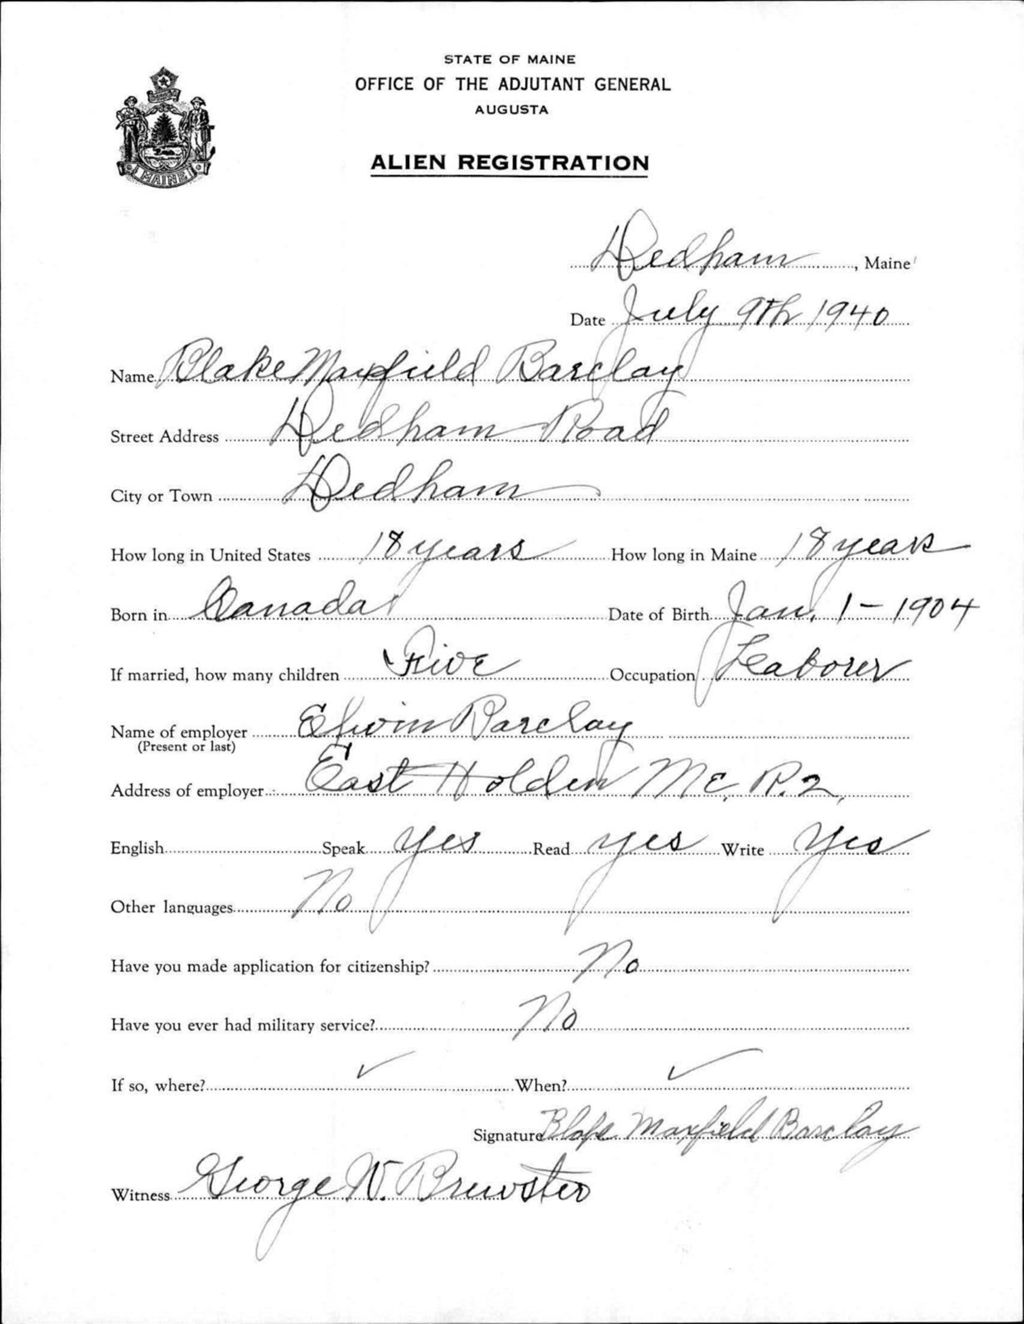 STATE OF MAINE
OFFICE OF THE ADJUTANT GENERAL
AUGUSTA
ALIEN REGISTRATION
MAINE
Dedham, Maine
Date July 9th 1940
Name Blake Maxfield Barclay
Street Address Dedham Road
City or Town Dedham
How long in United States 18 years How long in Maine 18 years
Born in Canada Date of Birth Jan. 1 - 1904
If married, how many children Five Occupation Laborer
Name of employer Elwin Barclay
(Present or last)
Address of employer East Holden Me. R. 2.
English Speak Yes Read Yes Write Yes
Other languages No
Have you made application for citizenship? No
Have you ever had military service? No
If so, where? ✓ When? ✓
Signature Blake Maxfield Barclay
Witness George W. Brewster